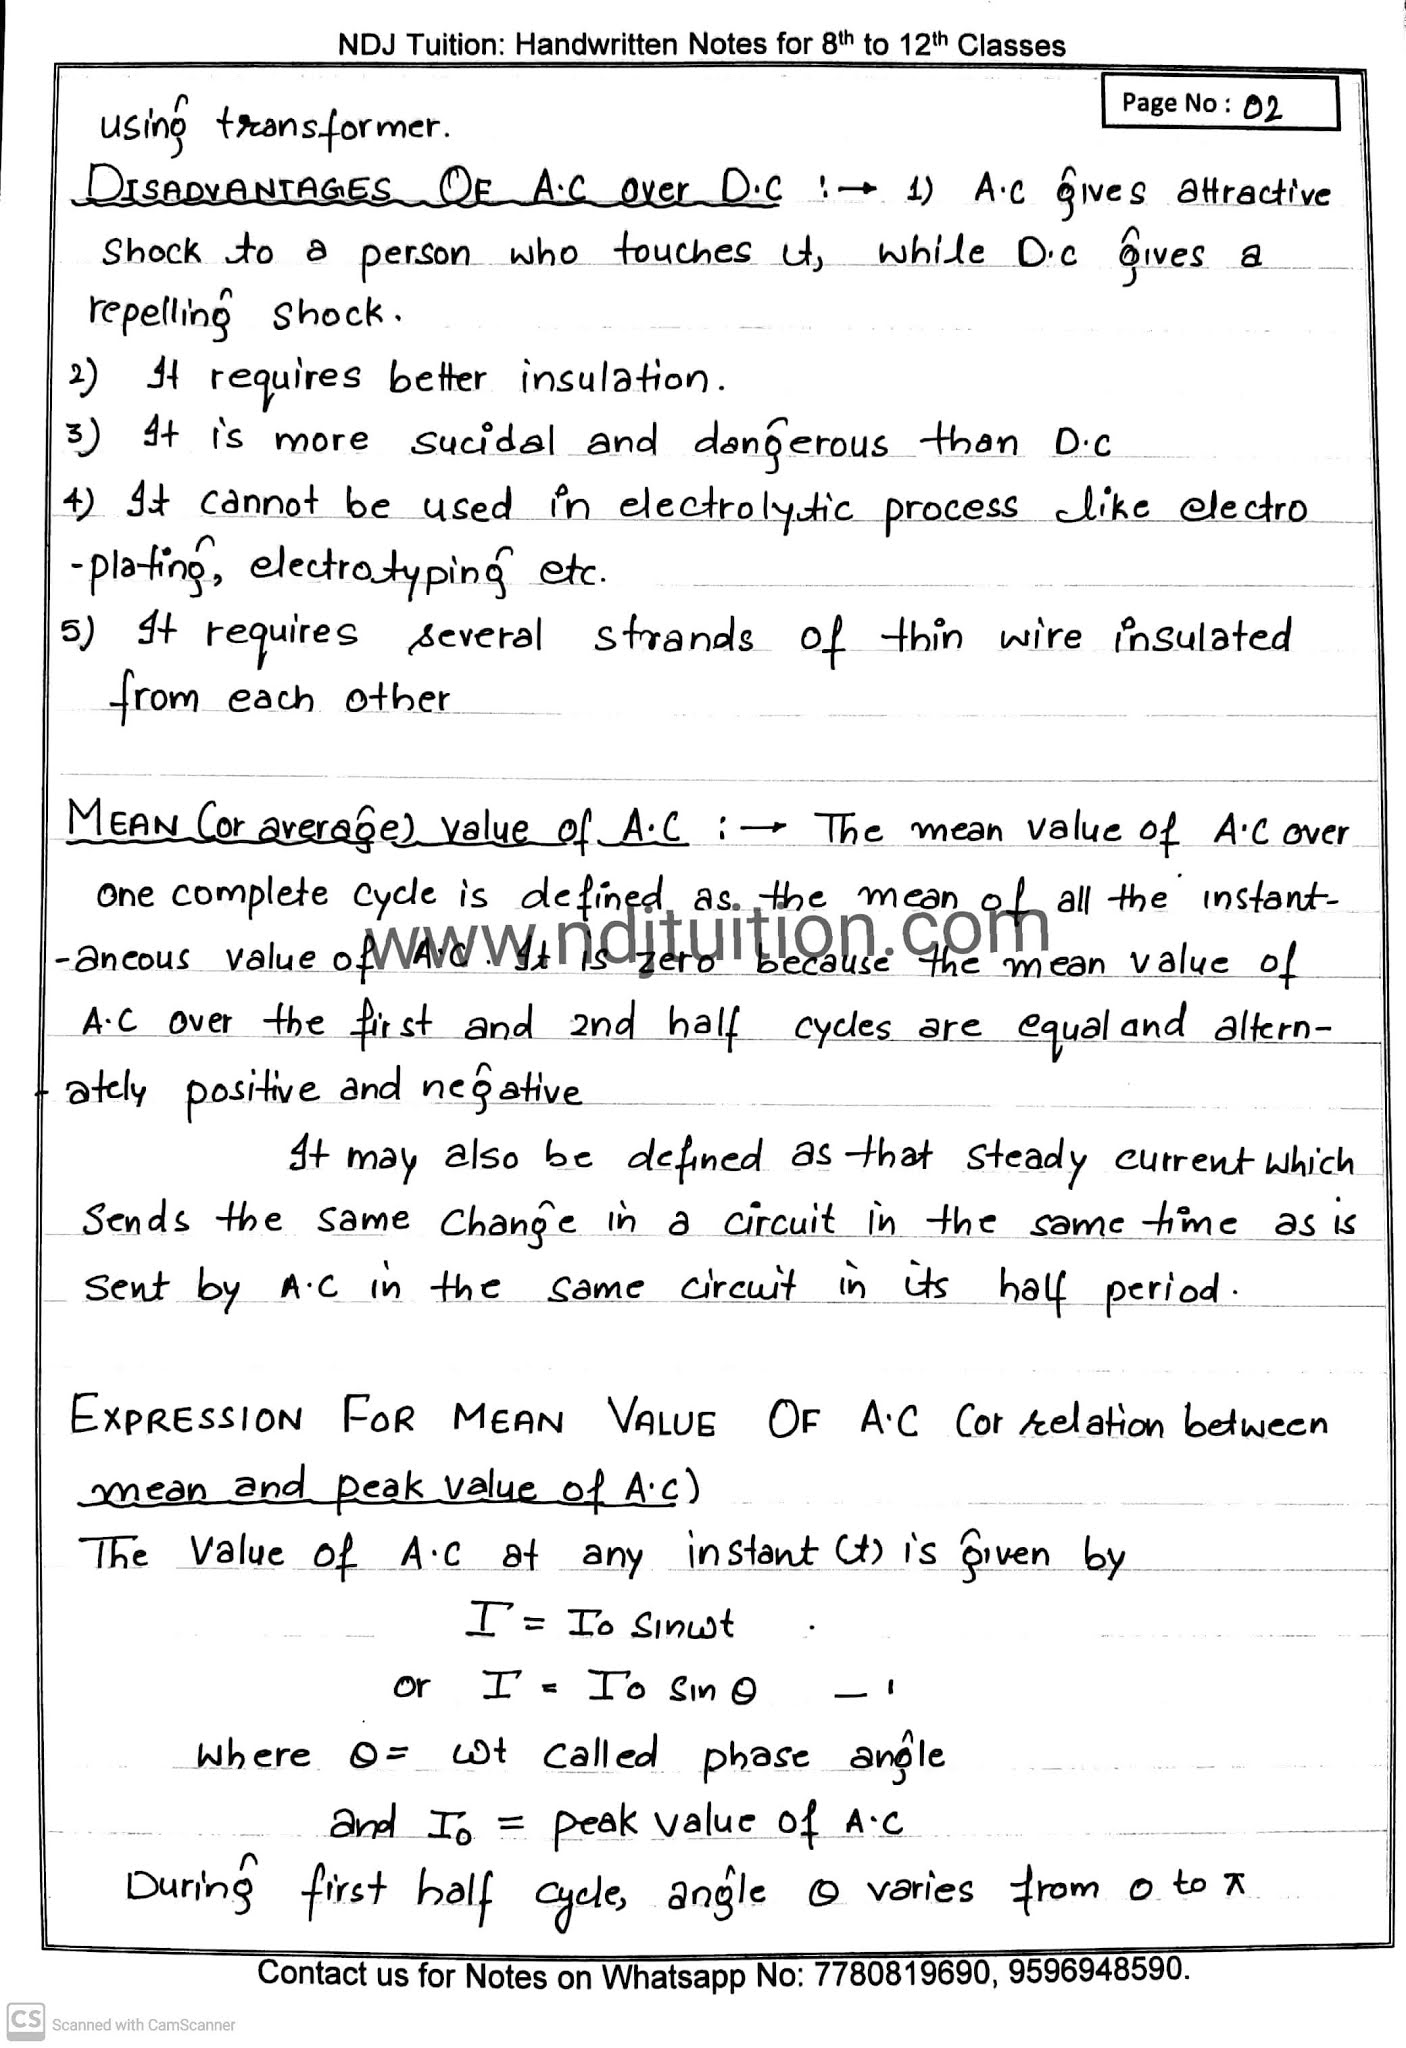 NDJ Tuition: Handwritten Notes for 8th to 12th Classes
Page No : 02
using transformer.
DISADVANTAGES OF A.C over D.C :→ 1) A.C gives attractive
shock to a person who touches it, while D.C gives a
repelling shock.
2) It requires better insulation.
3) It is more sucidal and dangerous than D.C
4) It cannot be used in electrolytic process like electro
-plating, electrotyping etc.
5) It requires several strands of thin wire insulated
from each other
MEAN (or average) value of A.C :→ The mean value of A.C over
one complete cycle is defined as the mean of all the instant-
-aneous value of A.C. It is zero because the mean value of
www.ndjtuition.com
A.C over the first and 2nd half cycles are equal and altern-
ately positive and negative
It may also be defined as that steady current which
sends the same change in a circuit in the same time as is
sent by A.C in the same circuit in its half period.
EXPRESSION FOR MEAN VALUE OF A.C (or relation between
mean and peak value of A.C)
The value of A.C at any instant (t) is given by
I = I0 sinωt
or I = I0 sin θ — 1
where θ = ωt called phase angle
and I0 = peak value of A.C
During first half cycle, angle θ varies from 0 to π
Contact us for Notes on Whatsapp No: 7780819690, 9596948590.
CS Scanned with CamScanner